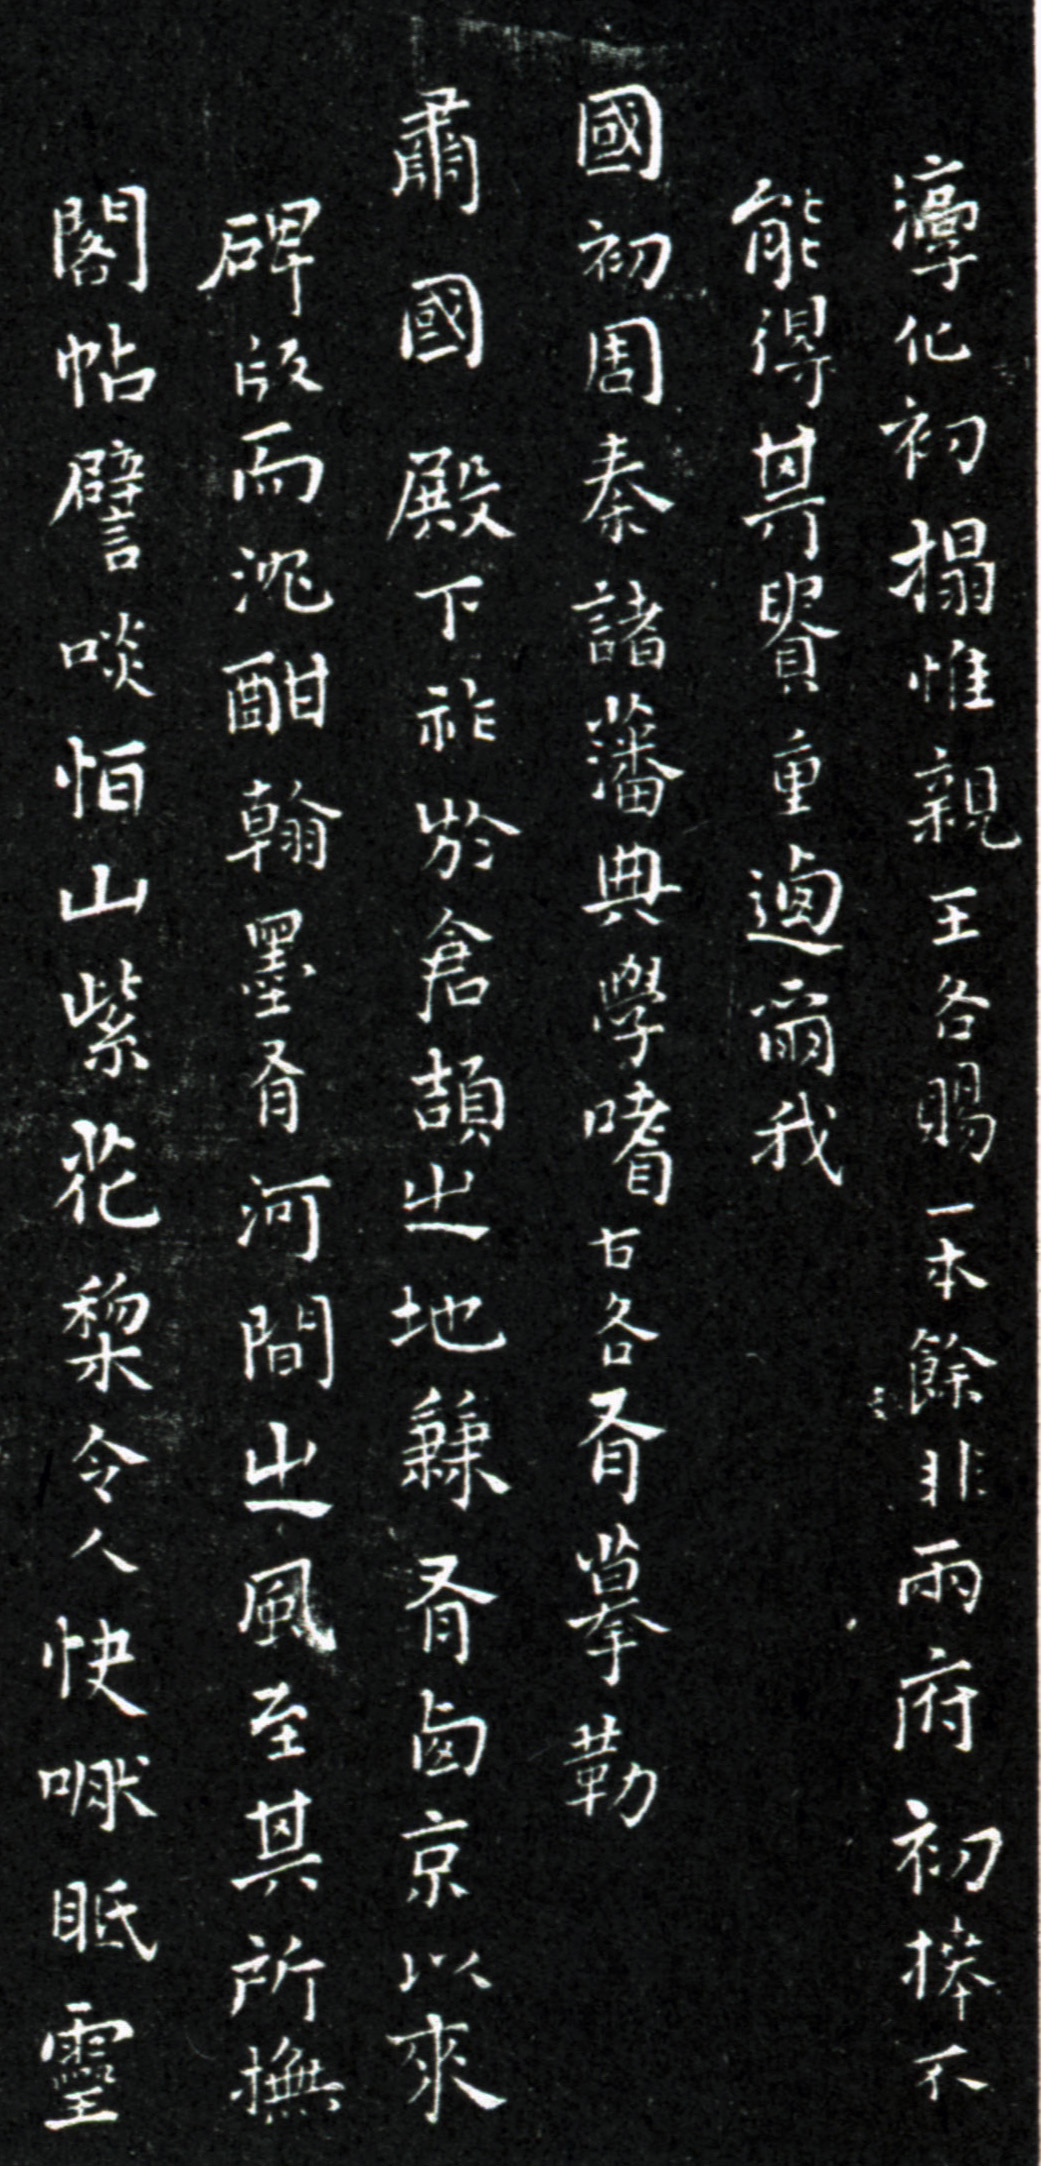 淳化初搨惟親王各賜一本餘非兩府初捧不
能得其貴重迺爾我
國初周秦諸藩典學嗜古各有摹勒
肅國殿下祚於倉頡之地兼有鹵京以來
碑版而沈酣翰墨有河間之風至其所撫
閣帖譬啖怕山紫花棃令人快噉眡靈